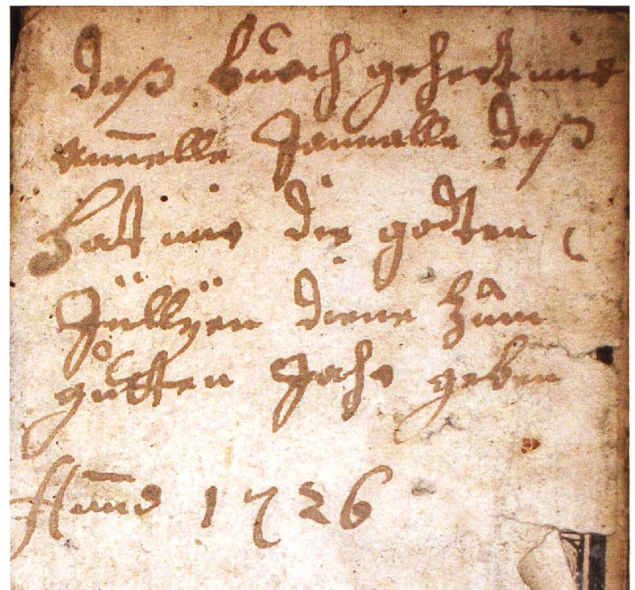 daß buoch gehert mir
Annelle Jannalle daß
hat mir die godten
Jüllÿen diene zum
gutten Jahr geben
Anno 1726